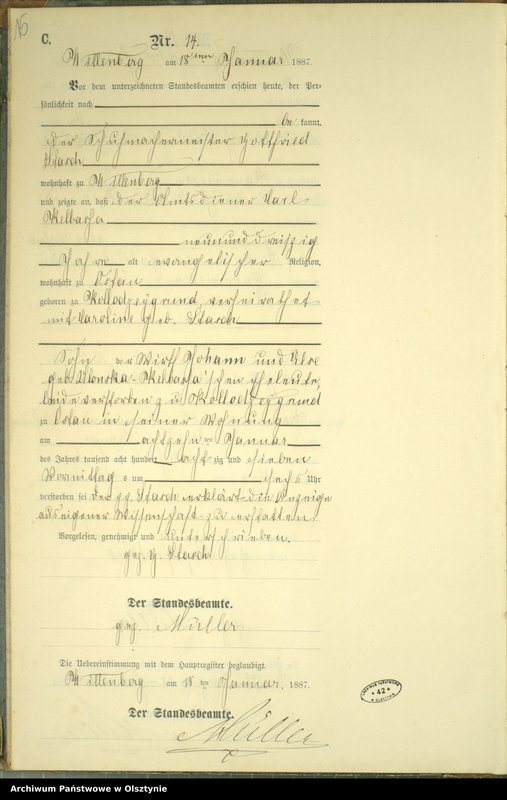 C.
Nr. 14.
Willenberg am 18ten Januar 1887.
Vor dem unterzeichneten Standesbeamten erschien heute, der Per-
sönlichkeit nach
be kannt,
der Schuhmachermeister Gottfried
Starch
wohnhaft zu Willenberg
und zeigte an, daß der Amtsdiener Carl
Kelbassa
neununddreißig
Jahre alt evangelischer Religion,
wohnhaft zu Ortan
geboren zu verheirathet
mit Caroline geb. Starch
Sohn der Wirth Johann und
geb. Kelbassa'schen Eheleute,
beide verstorben zu
zu Ortan in seiner Wohnung
am achtzehnten Januar
des Jahres tausend acht hundert acht zig und sieben
Vormittag s um sechs Uhr
verstorben sei. Der pp. Starch erklärt die Anzeige
aus eigener Wissenschaft zu erstatten.
Vorgelesen, genehmigt und unterschrieben.
gez. G. Starch
Der Standesbeamte.
gez. Müller
Die Uebereinstimmung mit dem Hauptregister beglaubigt.
Willenberg am 18 ten Januar 1887.
Der Standesbeamte.
Müller
* 42 *
Archiwum Państwowe w Olsztynie